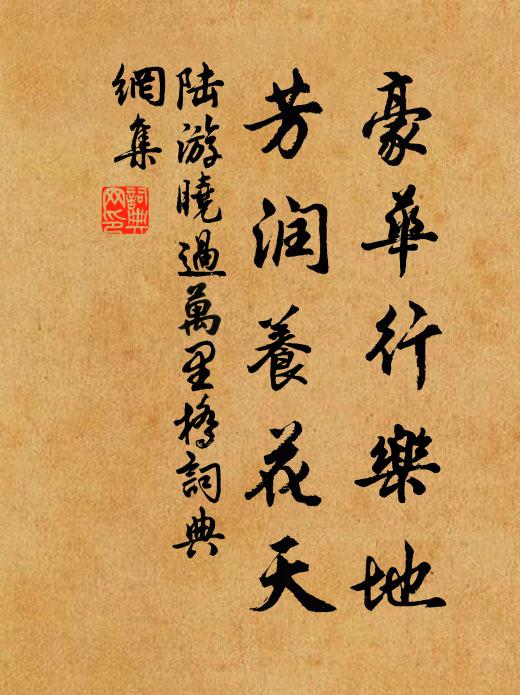 豪華行樂地
芳润養花天
陆游曉過萬里橋詞典
網集
詞典
网印